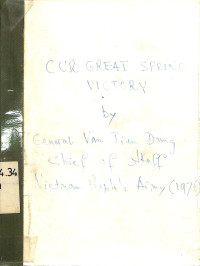 OUR GREAT SPRING
VICTORY
by
General Van Tien Dung
Chief of Staff
Vietnam People's Army (1976)
4.34